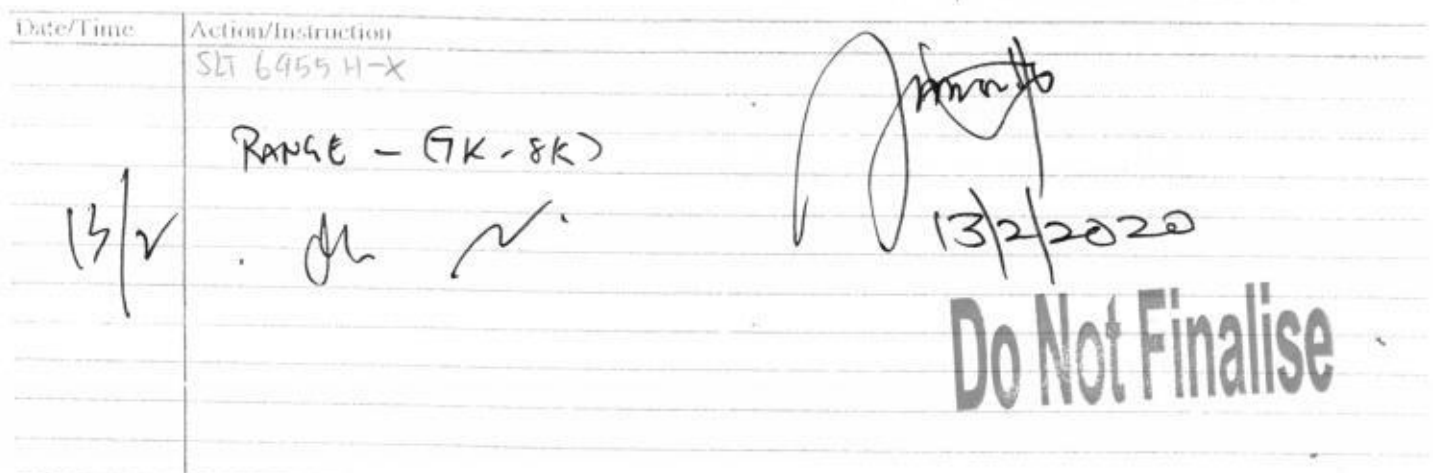 Date/Time Action/Instruction
SLT 6955 H-X
RANGE - (7K-8K)
13/2
13/2/2020
Do Not Finalise